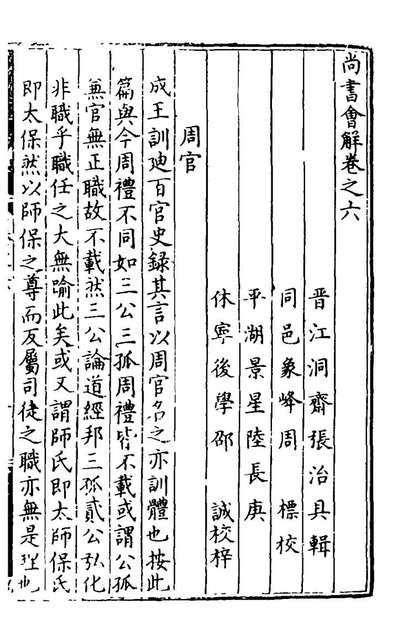 尚書會解卷之六
晋江洞齋張治具輯
同邑象峰周標校
平湖景星陸長庚
休寧後學邵誠校梓
周官
成王訓廸百官史録其言以周官名之亦訓體也按此
篇與今周禮不同如三公三孤周禮皆不載或謂公孤
兼官無正職故不載然三公論道經邦三孤貳公弘化
非職乎職任之大無踰此矣或又謂師氏即太師保氏
即太保然以師保之尊而反屬司徒之職亦無是理也